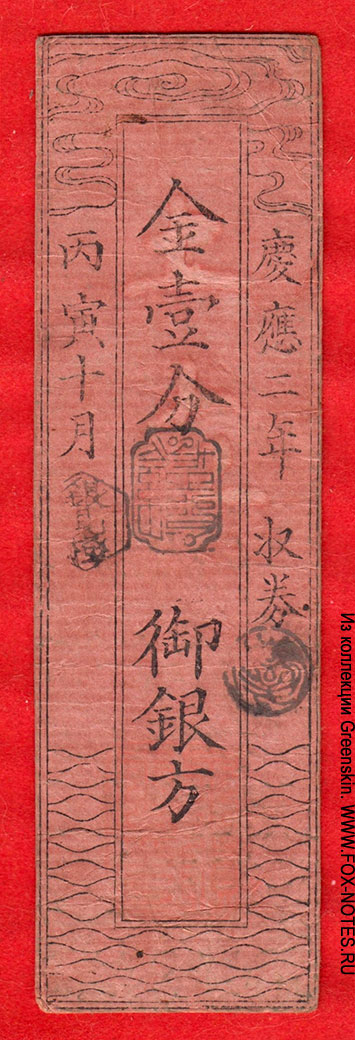 慶應二年 収券
金壹分 御銀方
丙寅十月
Из коллекции Greenskin. WWW.FOX-NOTES.RU